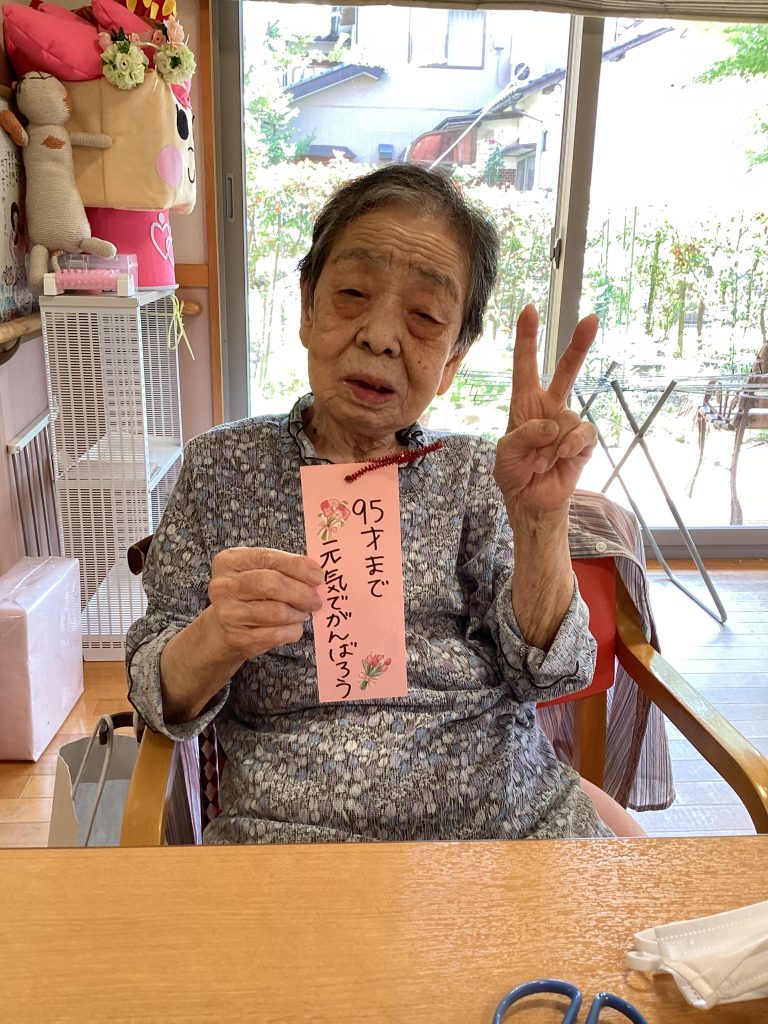 95才まで
元気でがんばろう